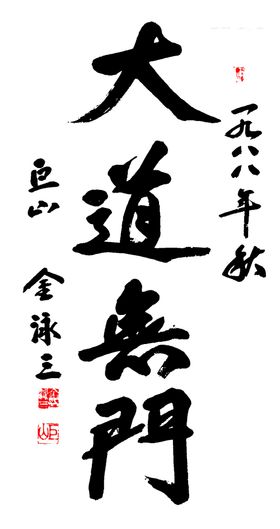 一九八八年秋
大道無門
巨山 金泳三